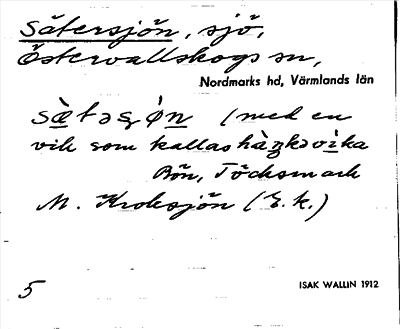 Sätersjön, sjö,
Östervallskogs sn,
Nordmarks hd, Värmlands län
(med en
vik som kallas
Bön, Töcksmark
M. Kroksjön (E.k.)
5
ISAK WALLIN 1912